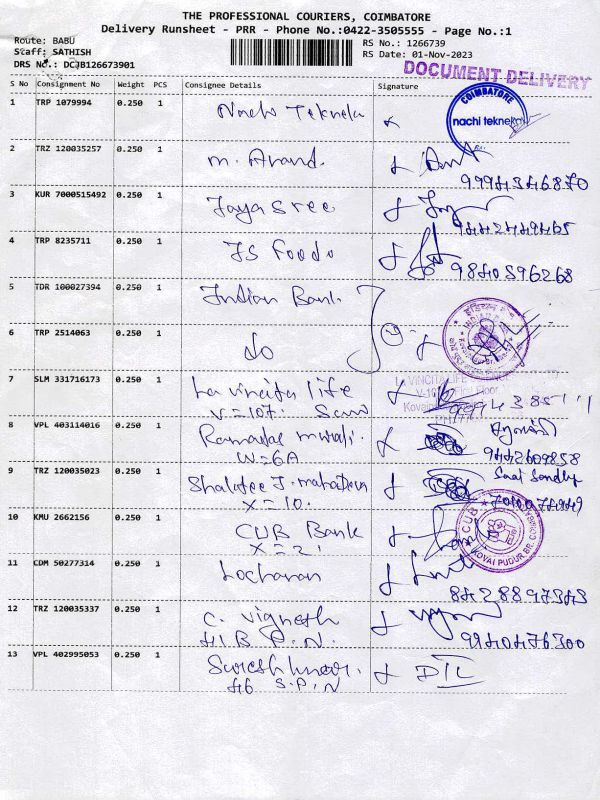 THE PROFESSIONAL COURIERS, COIMBATORE
Delivery Runsheet - PRR - Phone No.:0422-3505555 - Page No.:1
Route: BABU
Staff: SATHISH
DRS No.: DCJB126673901
RS No.: 1266739
RS Date: 01-Nov-2023
DOCUMENT DELIVERY
S No Consignment No Weight PCS Consignee Details Signature
1 TRP 1079994 0.250 1 Nachi Teknek
COIMBATORE
nachi teknek
2 TRZ 120035257 0.250 1 M. Anand.
9994346870
3 KUR 7000515492 0.250 1 Jayasree
9442449465
4 TRP 8235711 0.250 1 JS Foods
9840596268
5 TDR 100027394 0.250 1 Indian Bank
6 TRP 2514063 0.250 1 do
7 SLM 331716173 0.250 1 La vincita life
V=107.
LA VINCITA LIFE
8 VPL 403114016 0.250 1
W=6A
9442609858
9 TRZ 120035023 0.250 1
X=10.
10 KMU 2662156 0.250 1 CUB Bank
X=2
CUB
KOVAI PUDUR BR
11 CDM 50277314 0.250 1 Locharan
8428897343
12 TRZ 120035337 0.250 1 C. Vignesh
41B P.N.
9940476300
13 VPL 402995053 0.250 1
46 S.P.N